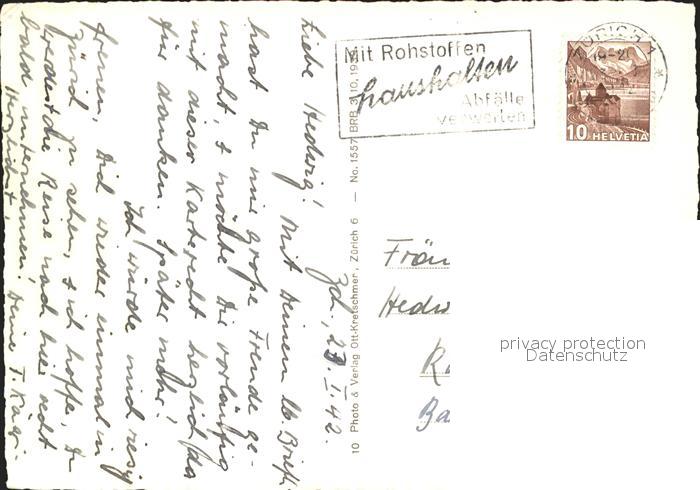 Zch., 23. I. 42.
Liebe Hedwig! Mit Deinem lb. Brief
hast Du mir große Freude ge-
macht, & möchte Dir vorläufig
mit dieser Karte recht herzlich da-
für danken. Später mehr!
Ich würde mich riesig
freuen, Dich wieder einmal in
Zürich zu sehen, & ich hoffe, Du
werdest die Reise nach hier recht
bald unternehmen!
Herzlichst, Deine T. Kägi.
10 Photo & Verlag Ott-Kretschmer, Zürich 6 — No. 1557 BRB 3.10.19
Mit Rohstoffen
haushalten
Abfälle
verwerten
ZÜRICH
10 HELVETIA
Fräu
Hedw
Ba
privacy protection
Datenschutz